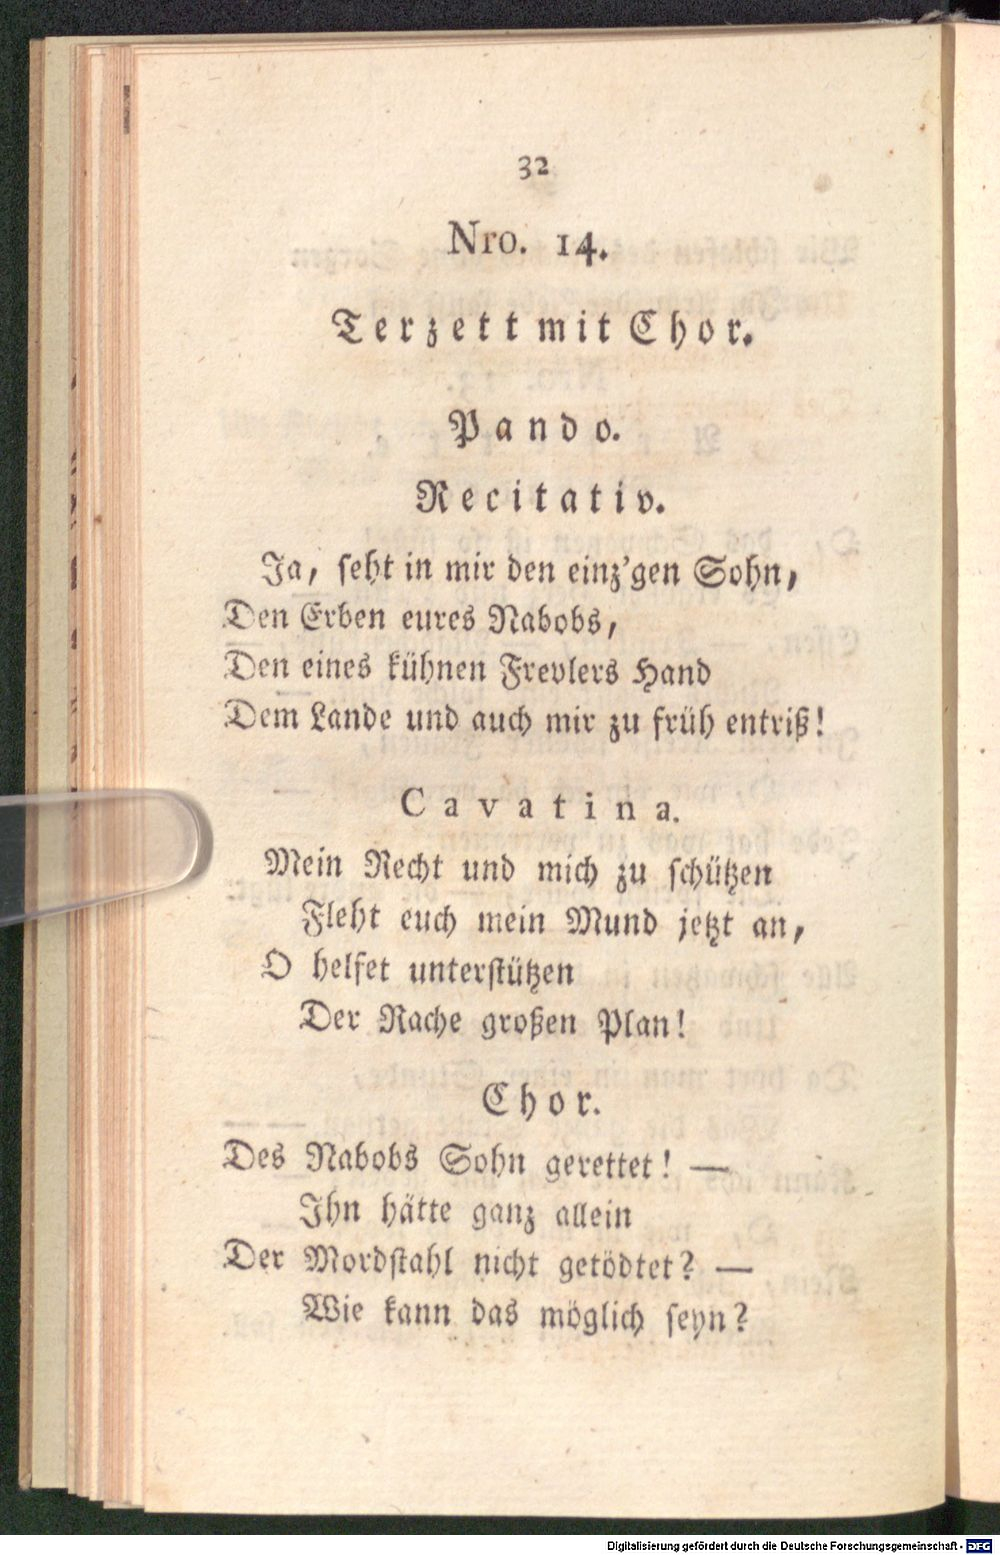 32
Nro. 14.
Terzett mit Chor.
Pando.
Recitativ.
Ja, seht in mir den einz'gen Sohn,
Den Erben eures Nabobs,
Den eines kühnen Frevlers Hand
Dem Lande und auch mir zu früh entriß!
Cavatina.
Mein Recht und mich zu schützen
Fleht euch mein Mund jetzt an,
O helfet unterstützen
Der Rache großen Plan!
Chor.
Des Nabobs Sohn gerettet! —
Ihn hätte ganz allein
Der Mordstahl nicht getödtet? —
Wie kann das möglich seyn?
Digitalisierung gefördert durch die Deutsche Forschungsgemeinschaft - DFG